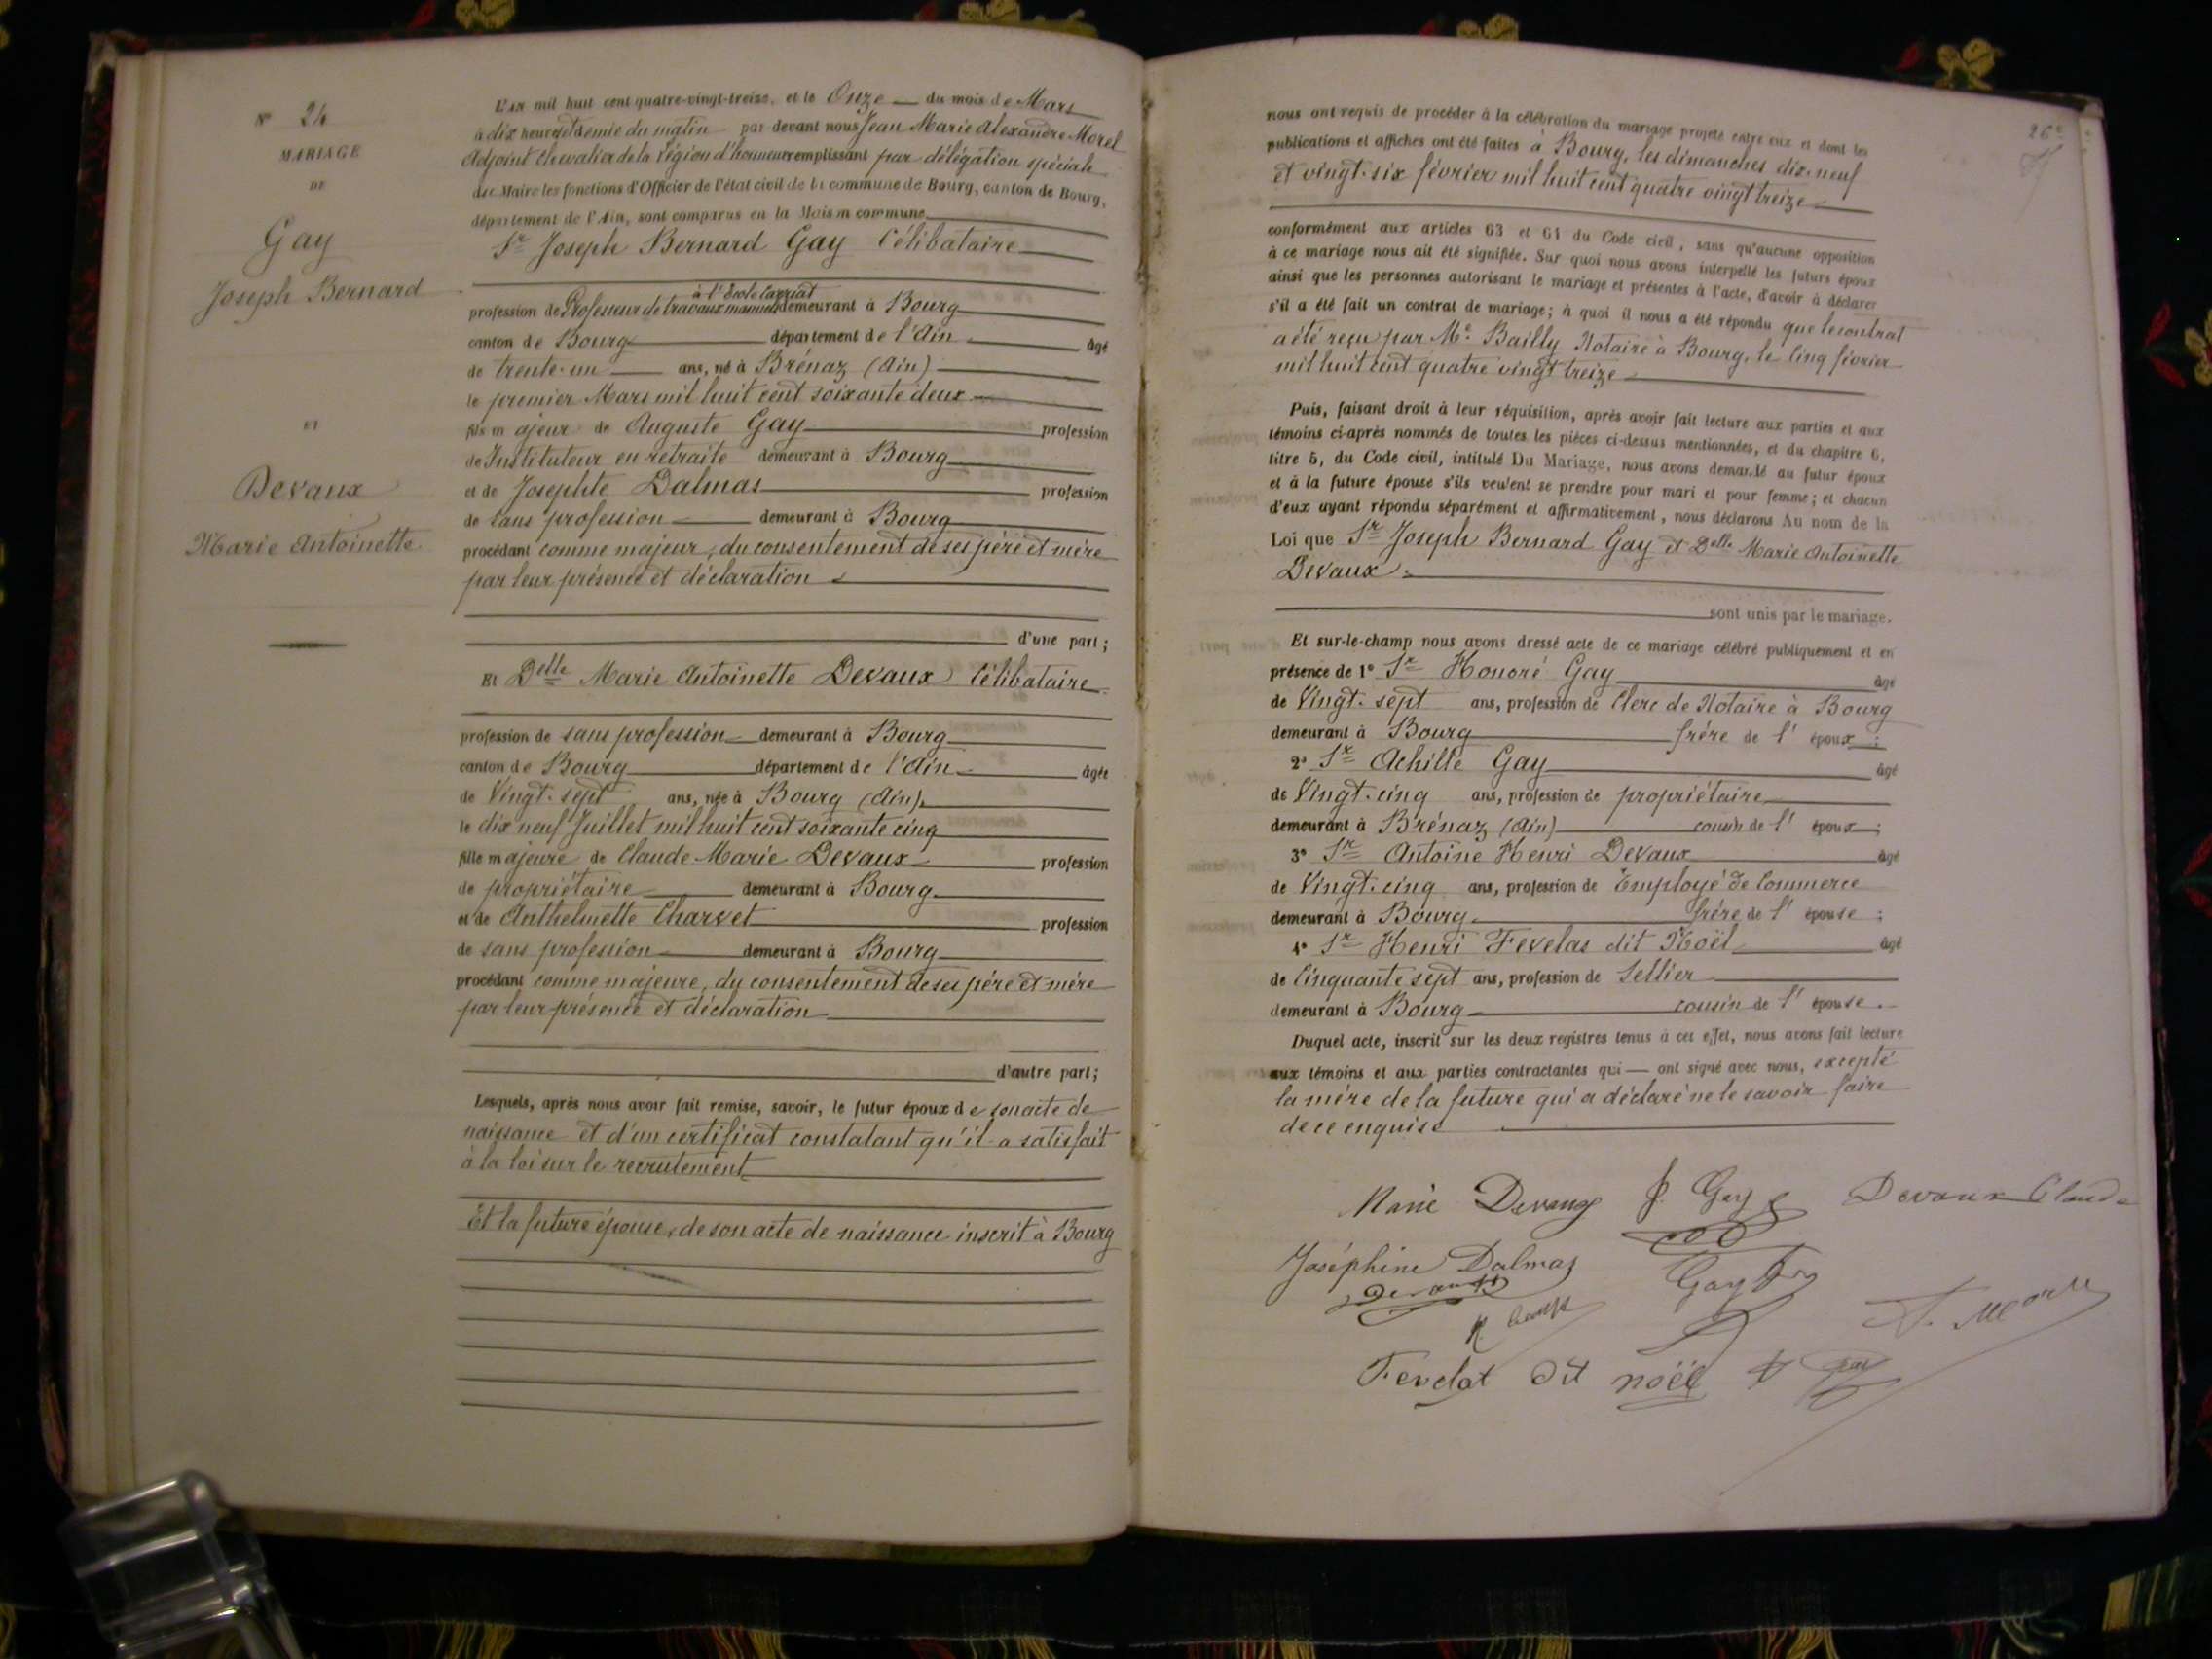 N° 24
MARIAGE
DE
Gay
Joseph Bernard
ET
Devaux
Marie Antoinette.
L'an mil huit cent quatre-vingt-treize, et le Onze du mois de Mars
à dix heures et demie du matin par devant nous Jean Marie Alexandre Morel
Adjoint Chevalier de la Légion d'honneur remplissant par délégation spéciale
du Maire les fonctions d'Officier de l'état civil de la commune de Bourg, canton de Bourg,
département de l'Ain, sont comparus en la Maison commune
Sr Joseph Bernard Gay Célibataire
à l'Ecole Carriat
profession de Professeur de travaux manuels demeurant à Bourg
canton de Bourg département de l'Ain âgé
de trente-un ans, né à Brénaz (Ain)
le premier Mars mil huit cent soixante deux
fils majeur de Auguste Gay profession
de Instituteur en retraite demeurant à Bourg
et de Josephte Dalmas profession
de sans profession demeurant à Bourg
procédant comme majeur, du consentement de ses père et mère
par leur présence et déclaration
d'une part;
Et Delle Marie Antoinette Devaux Célibataire
profession de sans profession demeurant à Bourg
canton de Bourg département de l'Ain âgée
de Vingt-sept ans, née à Bourg (Ain),
le dix neuf Juillet mil huit cent soixante cinq
fille majeure de Claude Marie Devaux profession
de propriétaire demeurant à Bourg
et de Anthelmette Charvet profession
de sans profession demeurant à Bourg
procédant comme majeure, du consentement de ses père et mère
par leur présence et déclaration
d'autre part;
Lesquels, après nous avoir fait remise, savoir, le futur époux de son acte de
naissance et d'un certificat constatant qu'il a satisfait
à la loi sur le recrutement
Et la future épouse, de son acte de naissance inscrit à Bourg
26e
nous ont requis de procéder à la célébration du mariage projeté entre eux et dont les
publications et affiches ont été faites à Bourg, les dimanches dix-neuf
et vingt-six février mil huit cent quatre vingt treize
conformément aux articles 63 et 64 du Code civil, sans qu'aucune opposition
à ce mariage nous ait été signifiée. Sur quoi nous avons interpellé les futurs époux
ainsi que les personnes autorisant le mariage et présentes à l'acte, d'avoir à déclarer
s'il a été fait un contrat de mariage; à quoi il nous a été répondu que le contrat
a été reçu par Me Bailly Notaire à Bourg, le Cinq février
mil huit cent quatre vingt treize
Puis, faisant droit à leur réquisition, après avoir fait lecture aux parties et aux
témoins ci-après nommés de toutes les pièces ci-dessus mentionnées, et du chapitre 6,
titre 5, du Code civil, intitulé Du Mariage, nous avons demandé au futur époux
et à la future épouse s'ils veulent se prendre pour mari et pour femme; et chacun
d'eux ayant répondu séparément et affirmativement, nous déclarons Au nom de la
Loi que Sr Joseph Bernard Gay et Delle Marie Antoinette
Devaux
sont unis par le mariage.
Et sur-le-champ nous avons dressé acte de ce mariage célébré publiquement et en
présence de 1° Sr Honoré Gay âgé
de Vingt-sept ans, profession de Clerc de Notaire à Bourg
demeurant à Bourg frère de l'époux;
2° Sr Achille Gay âgé
de Vingt-cinq ans, profession de propriétaire
demeurant à Brénaz (Ain) cousin de l'époux;
3° Sr Antoine Henri Devaux âgé
de Vingt-cinq ans, profession de Employé de Commerce
demeurant à Bourg frère de l'épouse;
4° Sr Henri Fevelas dit Noël âgé
de Cinquante sept ans, profession de Sellier
demeurant à Bourg cousin de l'épouse.
Duquel acte, inscrit sur les deux registres tenus à cet effet, nous avons fait lecture
aux témoins et aux parties contractantes qui ont signé avec nous, excepté
la mère de la future qui a déclaré ne le savoir faire
de ce enquise
Marie Devaux J. Gay Devaux Claude
Joséphine Dalmas Gay
Devaux
A. Morel
Fevelat dit noël